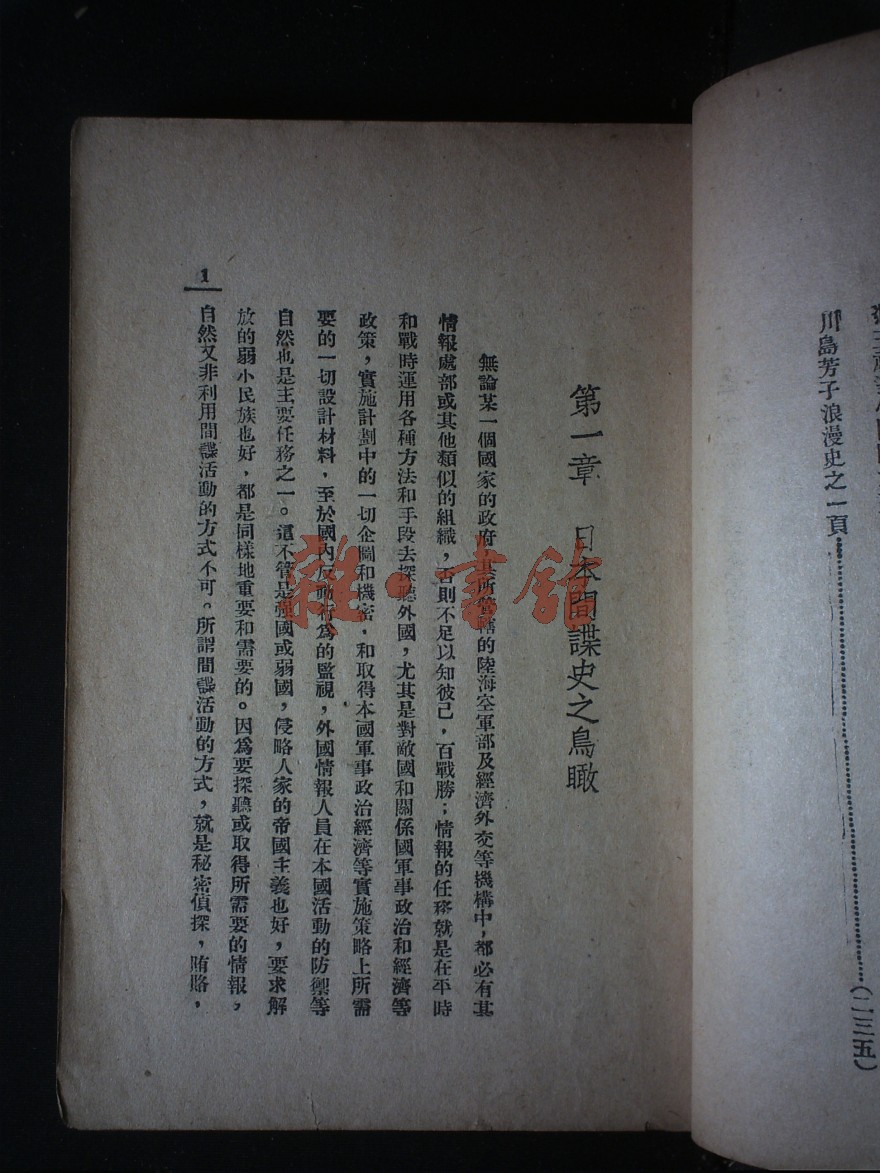 川島芳子浪漫史之一頁……(二三五)
第一章 日本間諜史之鳥瞰
無論某一個國家的政府,其所管轄的陸海空軍部及經濟外交等機構中,都必有其
情報處部或其他類似的組織,否則不足以知彼己,百戰勝;情報的任務就是在平時
和戰時運用各種方法和手段去探聽外國,尤其是對敵國和關係國軍事政治和經濟等
政策,實施計劃中的一切企圖和機密,和取得本國軍事政治經濟等實施策略上所需
要的一切設計材料,至於國內反動行為的監視,外國情報人員在本國活動的防禦等
自然也是主要任務之一。這不管是強國或弱國,侵略人家的帝國主義也好,要求解
放的弱小民族也好,都是同樣地重要和需要的。因爲要探聽或取得所需要的情報,
自然又非利用間諜活動的方式不可。所謂間諜活動的方式,就是秘密偵探,賄賂,
1
雜·書館